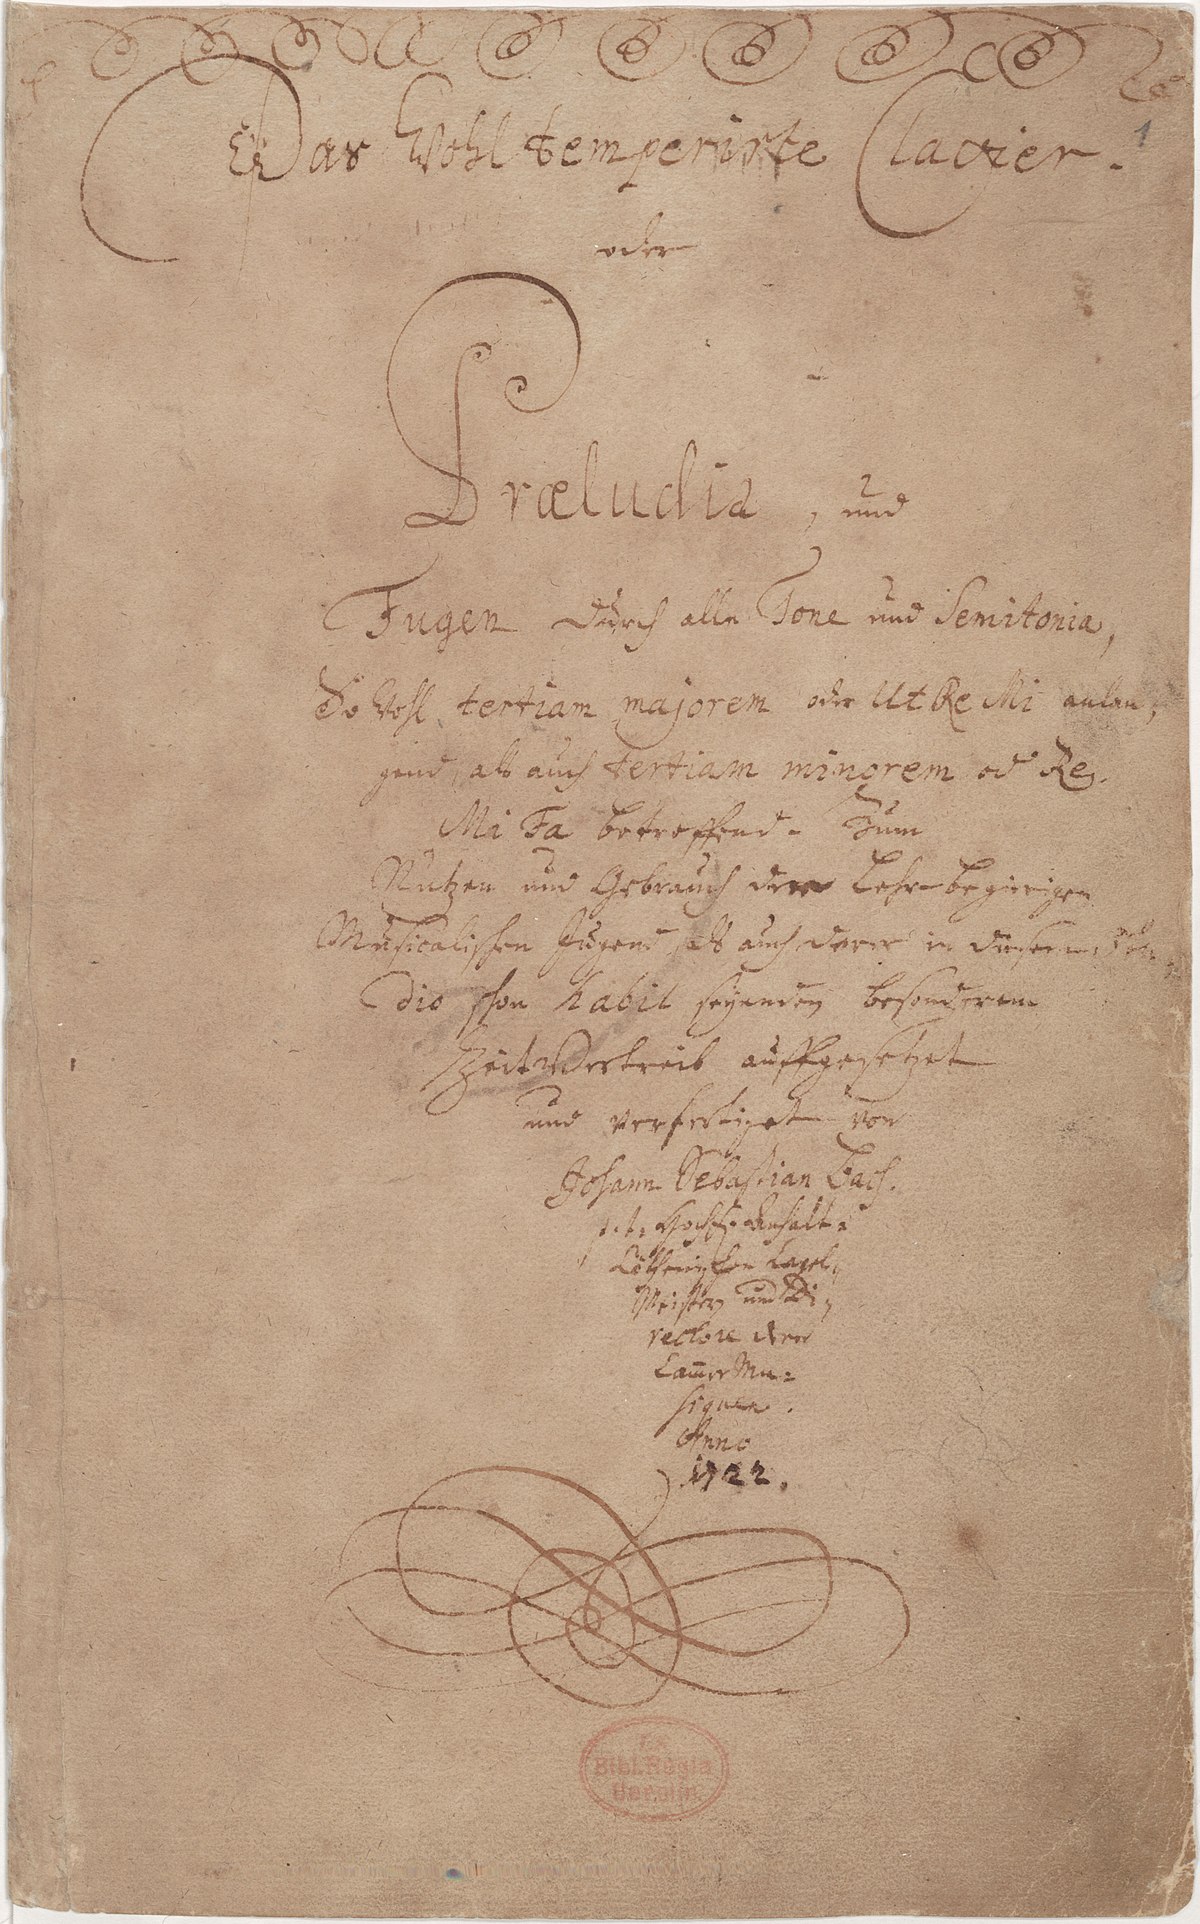 Das Wohltemperirte Clavier.
oder
Præludia, und
Fugen durch alle Tone und Semitonia,
So wohl tertiam majorem oder Ut Re Mi anlan,
gend, als auch tertiam minorem od Re
Mi Fa betreffend. Zum
Nutzen und Gebrauch der Lehr-begierigen
Musicalischen Jugend, als auch derer in diesem Stu,
dio schon habil seyenden besonderem
ZeitVertreib auffgesetzet
und verfertiget von
Johann Sebastian Bach.
p.t. Hochf. Anhalt-
Cöthenischen Capel-
Meistern und Di,
rectore derer
Cam̅er Mu-
siquen.
Anno
1722.
1